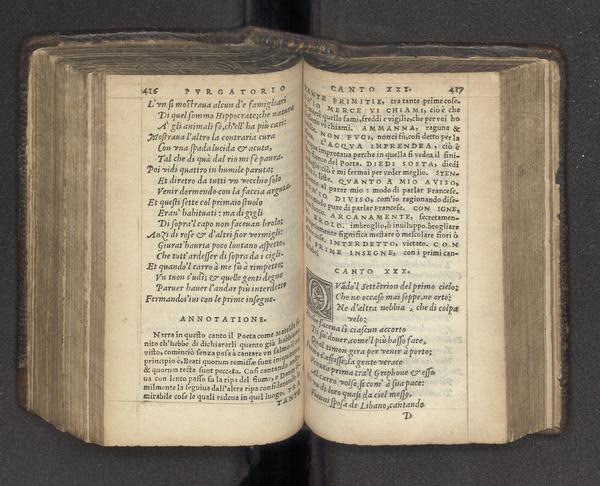 416 PVRGATORIO
L'vn si mostraua alcun d'e famigliari
Di quel sommo Hippocrate, che natura
A' gli animali fè, ch'ell' ha più cari:
Mostraua l'altro la contraria cura
Con vna spada lucida & acuta,
Tal che di quà dal rio mi fè paura.
Poi vidi quattro in humile paruta;
Et diretro da tutti vn vecchio solo
Venir dormendo con la faccia arguta.
Et questi sette col primaio stuolo
Eran' habituati: ma di gigli
Di sopra'l capo non faceuan brolo;
Anzi di rose & d'altri fior vermigli:
Giurat'hauria poco lontano aspetto,
Che tutt'ardesser di sopra da i cigli.
Et quando'l carro à me fù à rimpetto;
Vn tuon s'udì; & quelle genti degne
Paruer hauer l'andar più interdetto
Fermandos'iui con le prime insegne.
ANNOTATIONE.
Narra in questo canto il Poeta come Matelda
nito ch'hebbe di dichiararli quanto già
visto, cominciò senza posa à cantare vn salmo il cui
principio è, Beati quorum remisse sunt iniquitates,
& quorum tecta sunt peccata. Così cantando
ua con lento passo su la ripa del fiume, e Dante
milmente la seguiua dall'altra ripa considerando
mirabile cose le quali vedeua in quel luogo.
TANTE
CANTO XXX. 417
TANTE PRIMITIE, tra tante prime cose.
MERCE VI CHIAMI, ciò è che
quelle fami, freddi e vigilie, che per voi ho
vi chiami. AMMANNA, raguna &
NON FVCI, non ci fù, così detto per la
L'ACQVA IMPRENDEA, ciò è
improtaua perche in quella si vedea il sini-
fianco del Poeta. DIEDI SOSTA, diedi
ciò è mi fermai per veder meglio. STEN-
QVANTO A MIO AVISO,
al parer mio: modo di parlar Francese.
DIVISO, com'io ragionando dise-
modo pure di parlar Francese. CON IGNE,
ARCANAMENTE, secretamen-
BROLO. imbroglio, ò inuiluppo. brogliare
propriamente significa mestare ò mescolare fiori ò
INTERDETTO, vietato. CON
PRIME INSEGNE, con i primi can-
CANTO XXX.
QVādo'l Settētrion del primo cielo;
Che ne occaso mai seppe, ne orto;
Ne d'altra nebbia, che di colpa
velo;
faceua lì ciascun accorto
Di suo douer, come'l più basso face,
Qual timon gira per venir à porto;
Fermo s'affisse, la gente verace
Venuta prima tra'l Griphone & esso
Al carro volse, si com' à sua pace:
vn di loro quasi da ciel messo,
Veni sposa de Libano, cantando
D